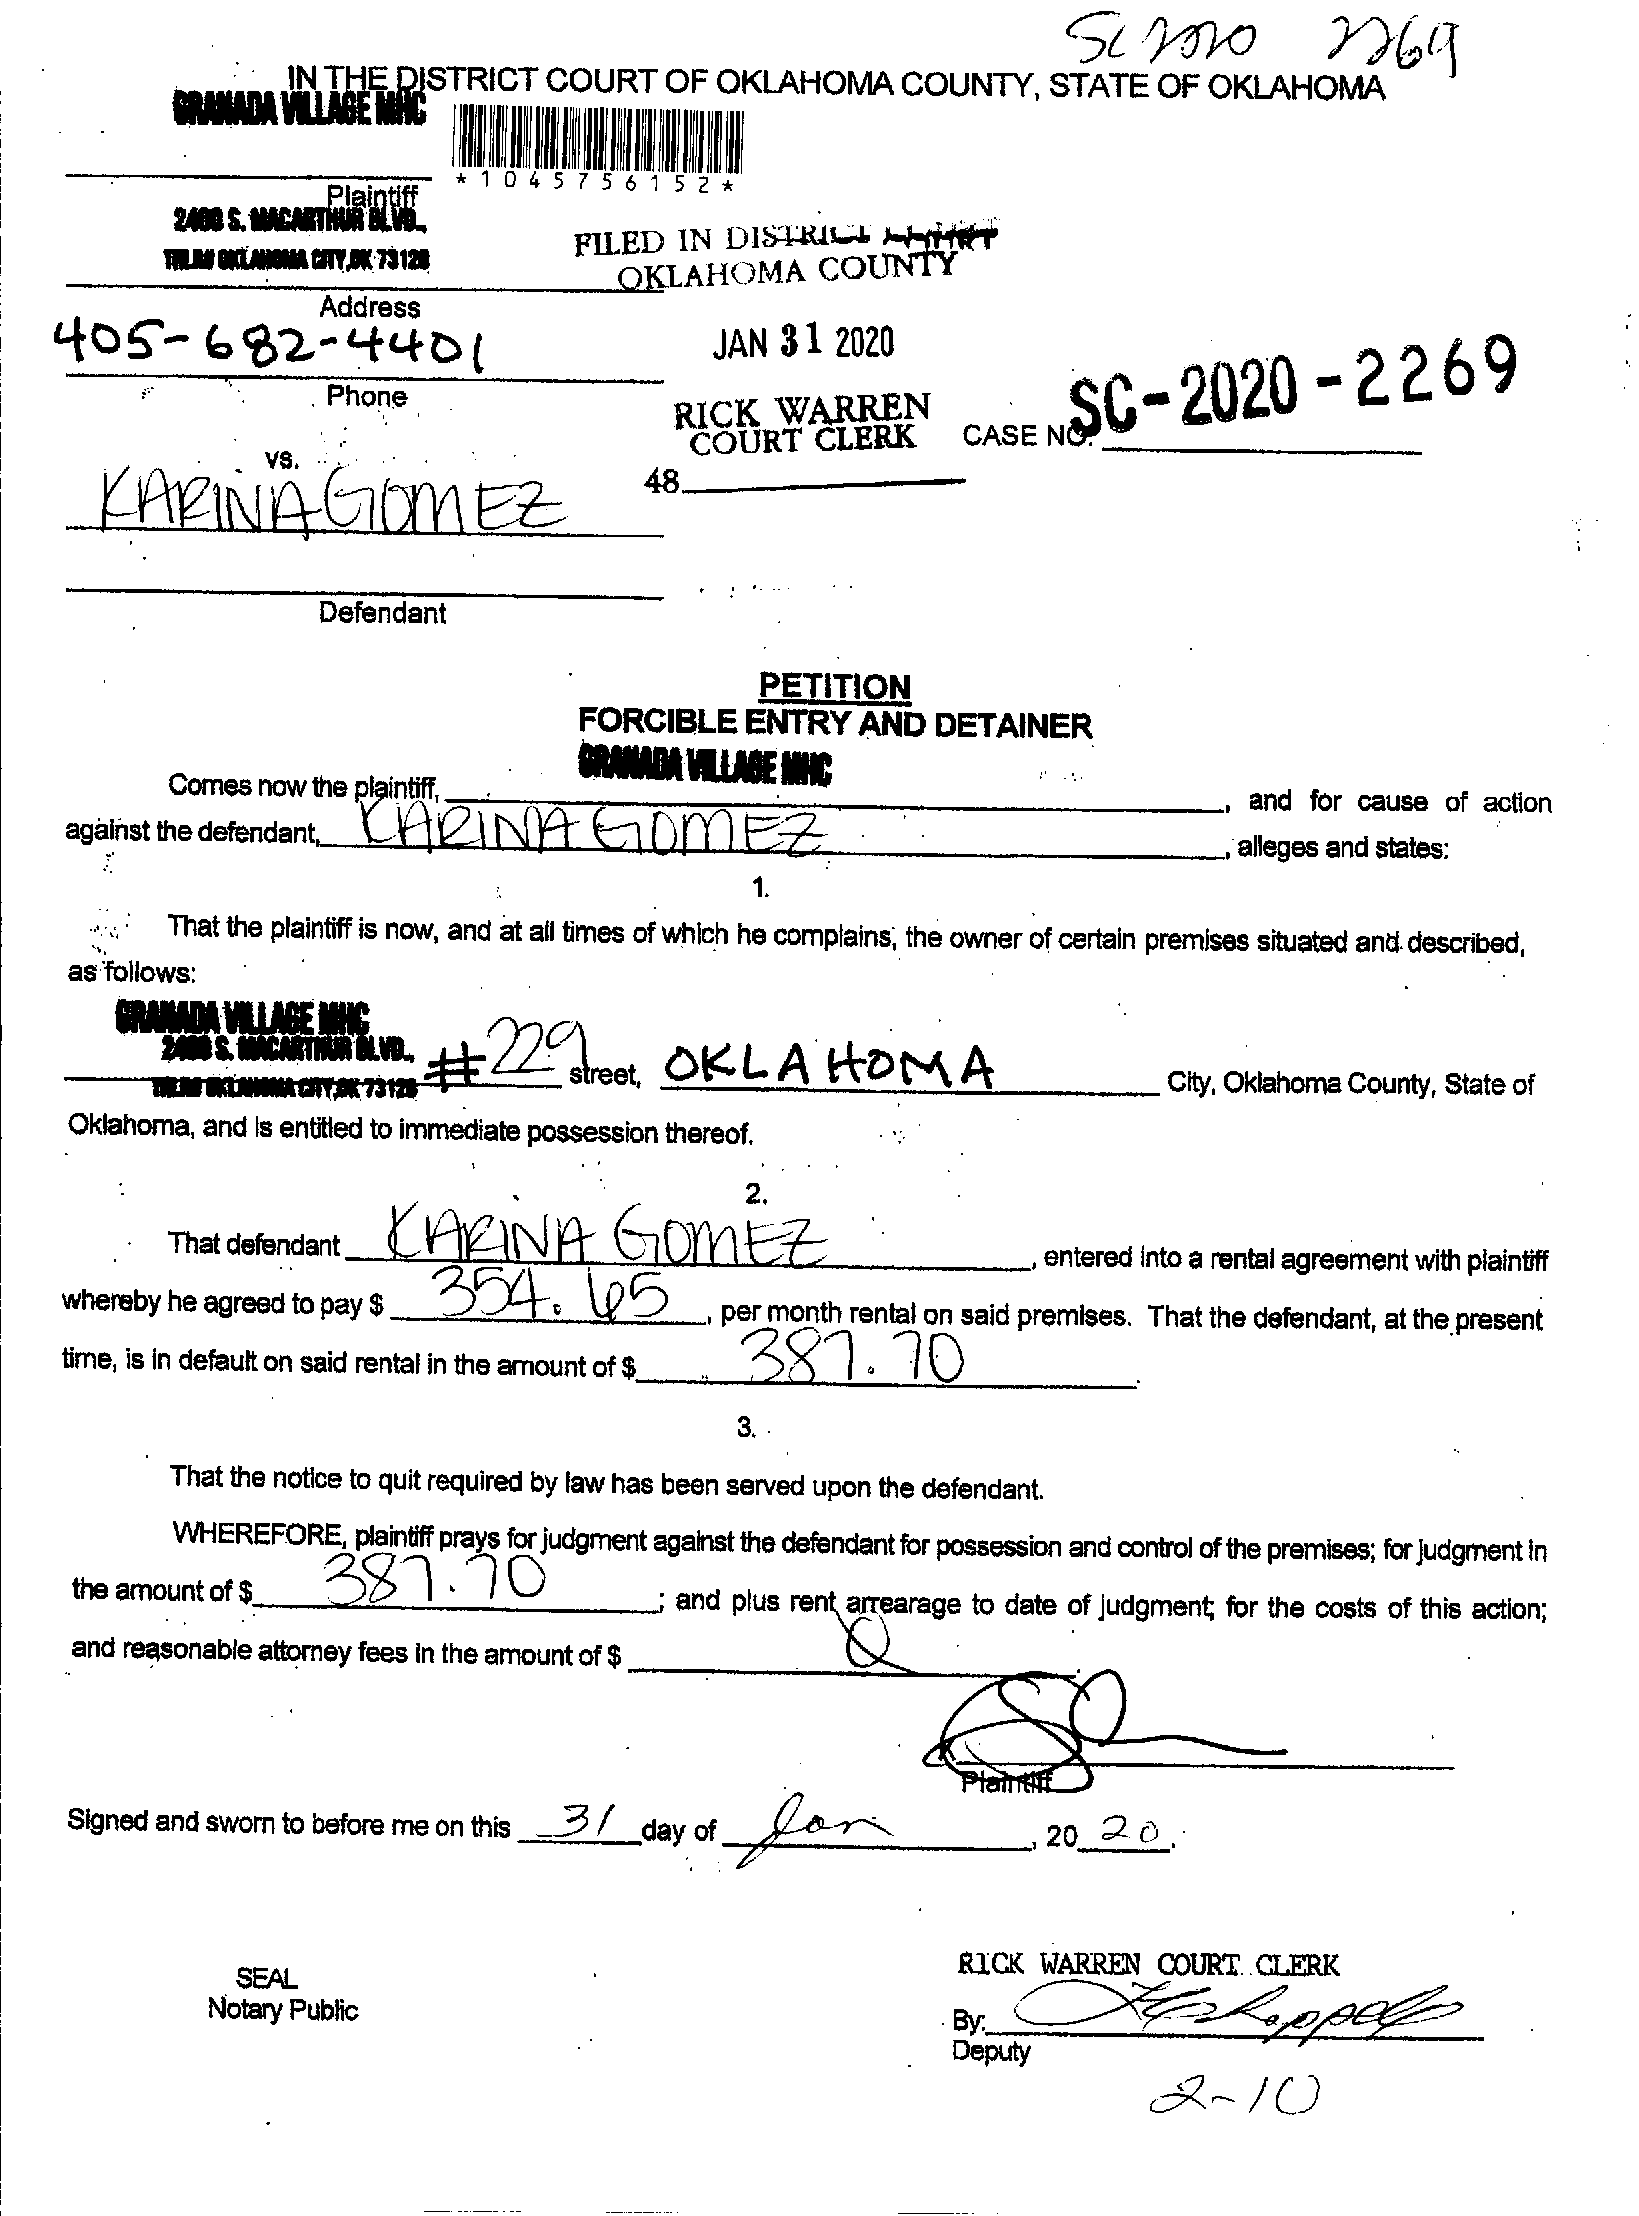 SC 2020 2269
IN THE DISTRICT COURT OF OKLAHOMA COUNTY, STATE OF OKLAHOMA
GRANADA VILLAGE MHC
*1045756152*
Plaintiff
2400 S. MACARTHUR BLVD.,
OKLAHOMA CITY, OK 73128
FILED IN DISTRICT COURT
OKLAHOMA COUNTY
Address
405-682-4401
JAN 31 2020
Phone
RICK WARREN
COURT CLERK
CASE NO. SC-2020-2269
vs.
48
KARINA GOMEZ
Defendant
PETITION
FORCIBLE ENTRY AND DETAINER
GRANADA VILLAGE MHC
Comes now the plaintiff, , and for cause of action
against the defendant, KARINA GOMEZ , alleges and states:
1.
That the plaintiff is now, and at all times of which he complains, the owner of certain premises situated and described,
as follows:
GRANADA VILLAGE MHC
2400 S. MACARTHUR BLVD.,
OKLAHOMA CITY, OK 73128 #229 street, OKLAHOMA City, Oklahoma County, State of
Oklahoma, and is entitled to immediate possession thereof.
2.
That defendant KARINA GOMEZ , entered into a rental agreement with plaintiff
whereby he agreed to pay $ 354.65 , per month rental on said premises. That the defendant, at the present
time, is in default on said rental in the amount of $ 387.70 .
3.
That the notice to quit required by law has been served upon the defendant.
WHEREFORE, plaintiff prays for judgment against the defendant for possession and control of the premises; for judgment in
the amount of $ 387.70 ; and plus rent arrearage to date of judgment; for the costs of this action;
and reasonable attorney fees in the amount of $ 0 .
Plaintiff
Signed and sworn to before me on this 31 day of Jan , 20 20.
SEAL
Notary Public
RICK WARREN COURT CLERK
By:
Deputy
2-10